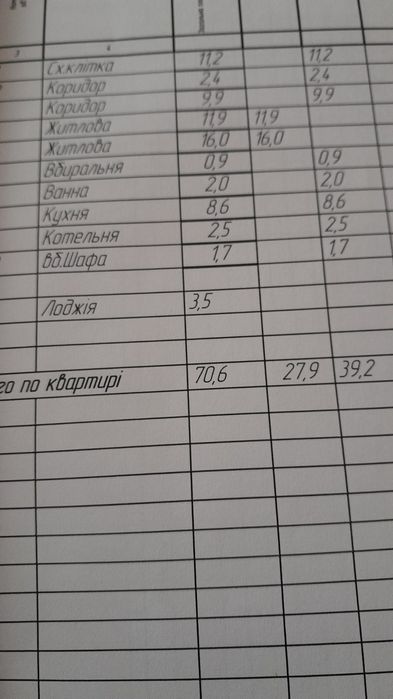 3 4
Сх.клітка 11,2 11,2
Коридор 2,4 2,4
Коридор 9,9 9,9
Житлова 11,9 11,9
Житлова 16,0 16,0
Вбиральня 0,9 0,9
Ванна 2,0 2,0
Кухня 8,6 8,6
Котельня 2,5 2,5
вб.Шафа 1,7 1,7
Лоджія 3,5
го по квартирі 70,6 27,9 39,2